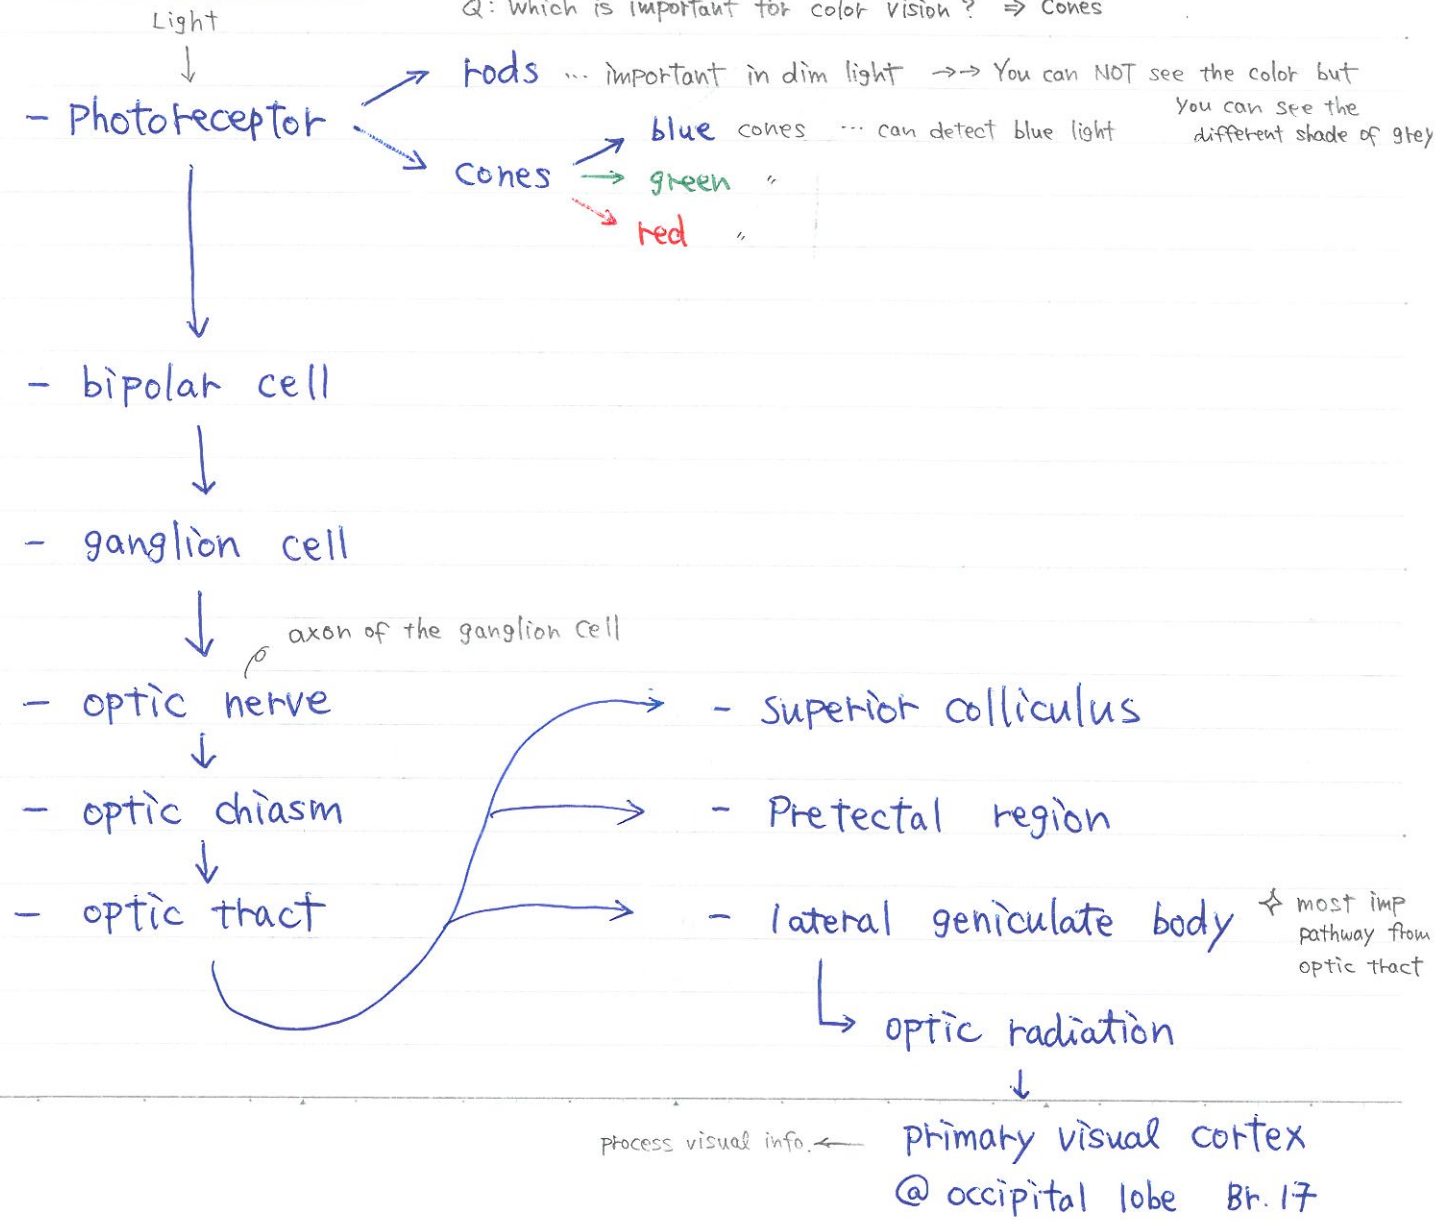 Q: Which is important for color vision? ⇒ Cones
Light
↓
- Photoreceptor
rods … important in dim light →→ You can NOT see the color but
you can see the
different shade of grey
cones
blue cones … can detect blue light
green 〃
red 〃
- bipolar cell
- ganglion cell
axon of the ganglion cell
- optic nerve
- optic chiasm
- optic tract
- Superior colliculus
- Pretectal region
- lateral geniculate body
✧ most imp
pathway from
optic tract
optic radiation
primary visual cortex
process visual info. ←
@ occipital lobe Br. 17